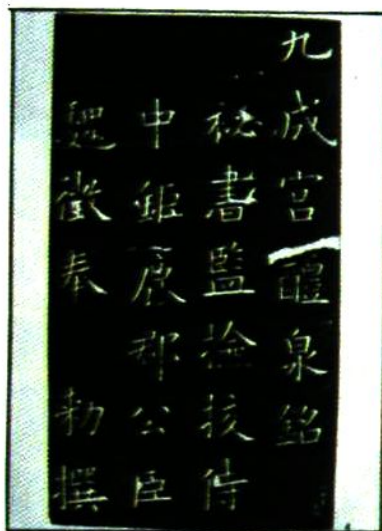 九成宮醴泉銘
祕書監檢挍侍
中鉅鹿郡公臣
魏徵奉 勑撰